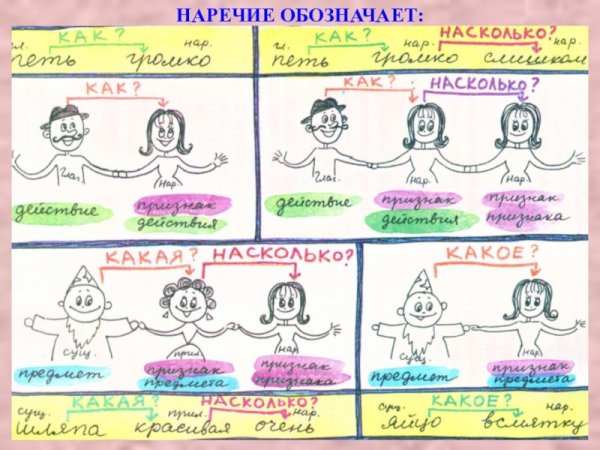 НАРЕЧИЕ ОБОЗНАЧАЕТ:
КАК?
гл. нар.
петь громко
КАК? НАСКОЛЬКО?
гл. нар. нар.
петь громко слишком
КАК?
Глаг. Нар.
действие признак действия
КАК? НАСКОЛЬКО?
Глаг. Нар. Нар.
действие признак действия признак признака
КАКАЯ? НАСКОЛЬКО?
Сущ. Прил. Нар.
предмет признак предмета признак признака
КАКОЕ?
Сущ. Нар.
предмет признак предмета
КАКАЯ? НАСКОЛЬКО?
сущ. прил. нар.
шляпа красивая очень
КАКОЕ?
сущ. нар.
яйцо всмятку